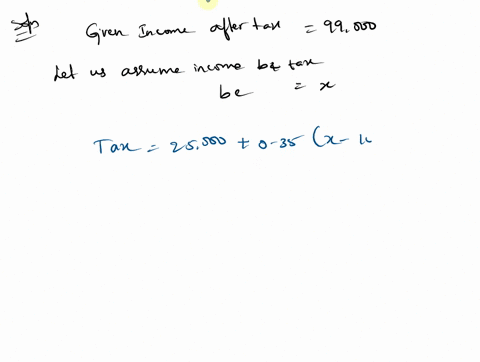 Soln Given Income after tax = 99.000
Let us assume income be tax
be = x
Tax = 25.000 + 0.35 (x - 1